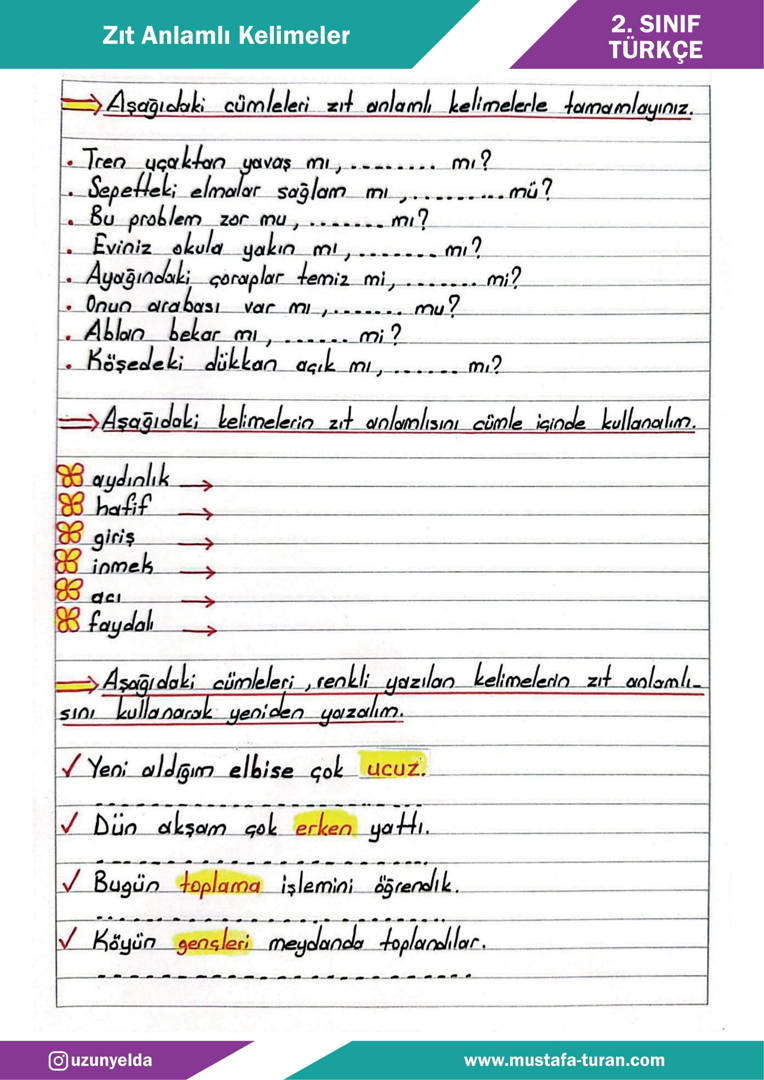 Zıt Anlamlı Kelimeler
2. SINIF
TÜRKÇE
Aşağıdaki cümleleri zıt anlamlı kelimelerle tamamlayınız.
• Tren uçaktan yavaş mı, ......... mı?
• Sepetteki elmalar sağlam mı, .......... mü?
• Bu problem zor mu, ........ mı?
• Eviniz okula yakın mı, ........ mı?
• Ayağındaki çoraplar temiz mi, ....... mi?
• Onun arabası var mı, ........ mu?
• Ablan bekar mı, ....... mi?
• Köşedeki dükkan açık mı, ....... mı?
Aşağıdaki kelimelerin zıt anlamlısını cümle içinde kullanalım.
aydınlık →
hafif →
giriş →
inmek →
acı →
faydalı →
Aşağıdaki cümleleri, renkli yazılan kelimelerin zıt anlamlı-
sını kullanarak yeniden yazalım.
✓ Yeni aldığım elbise çok ucuz.
✓ Dün akşam çok erken yattı.
✓ Bugün toplama işlemini öğrendik.
✓ Köyün gençleri meydanda toplandılar.
uzunyelda
www.mustafa-turan.com